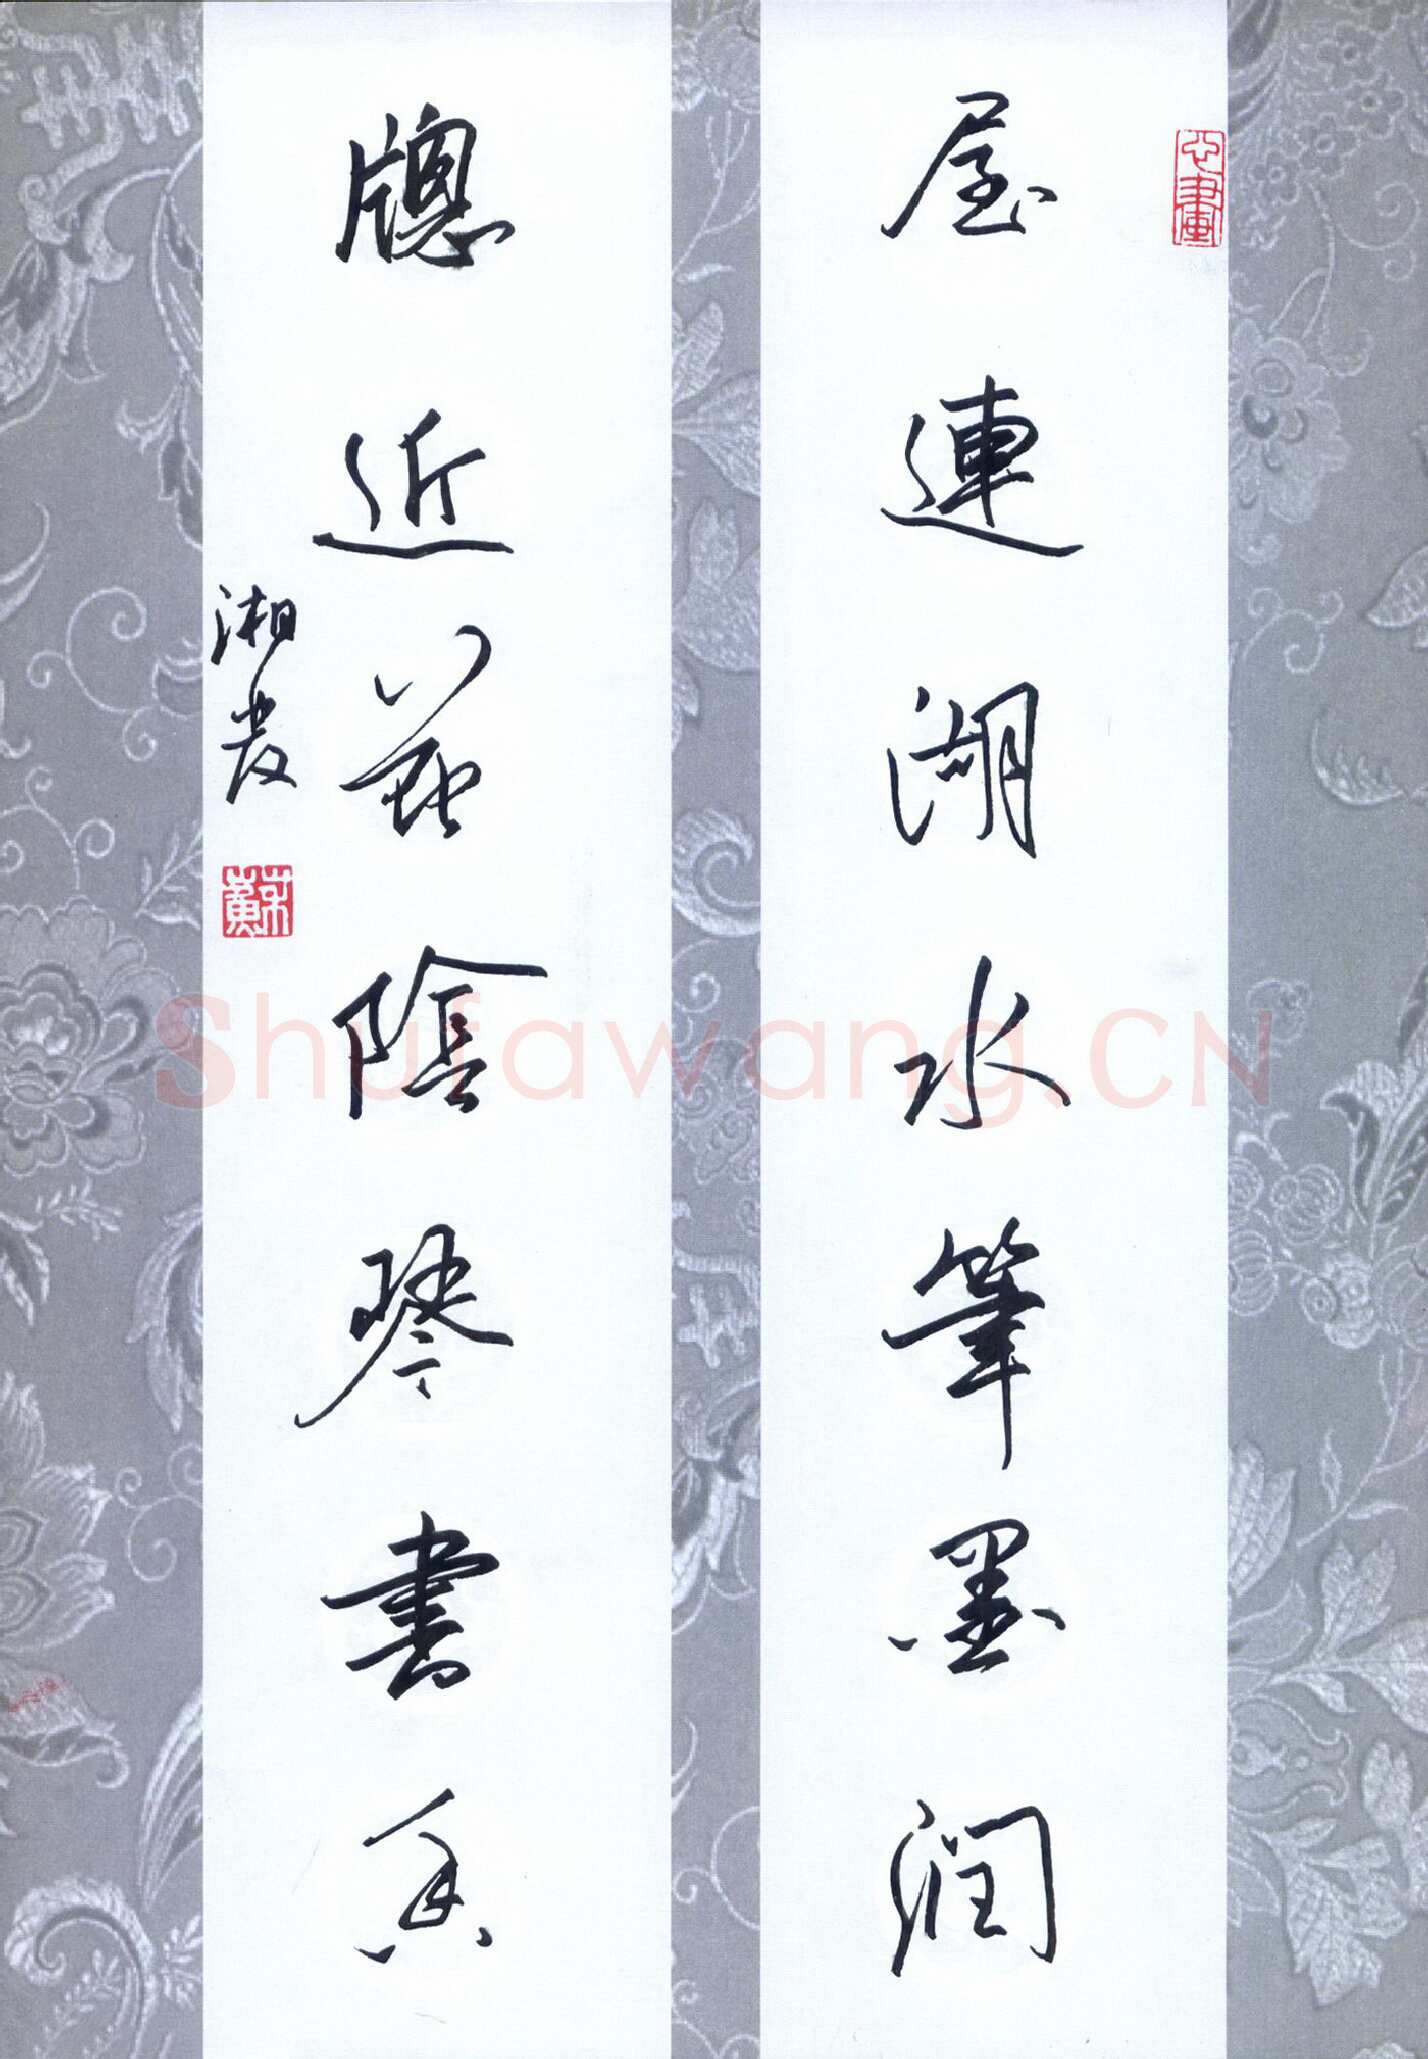 屋連湖水筆墨潤
牕近花陰琴書香
心畫
Shufawang.CN